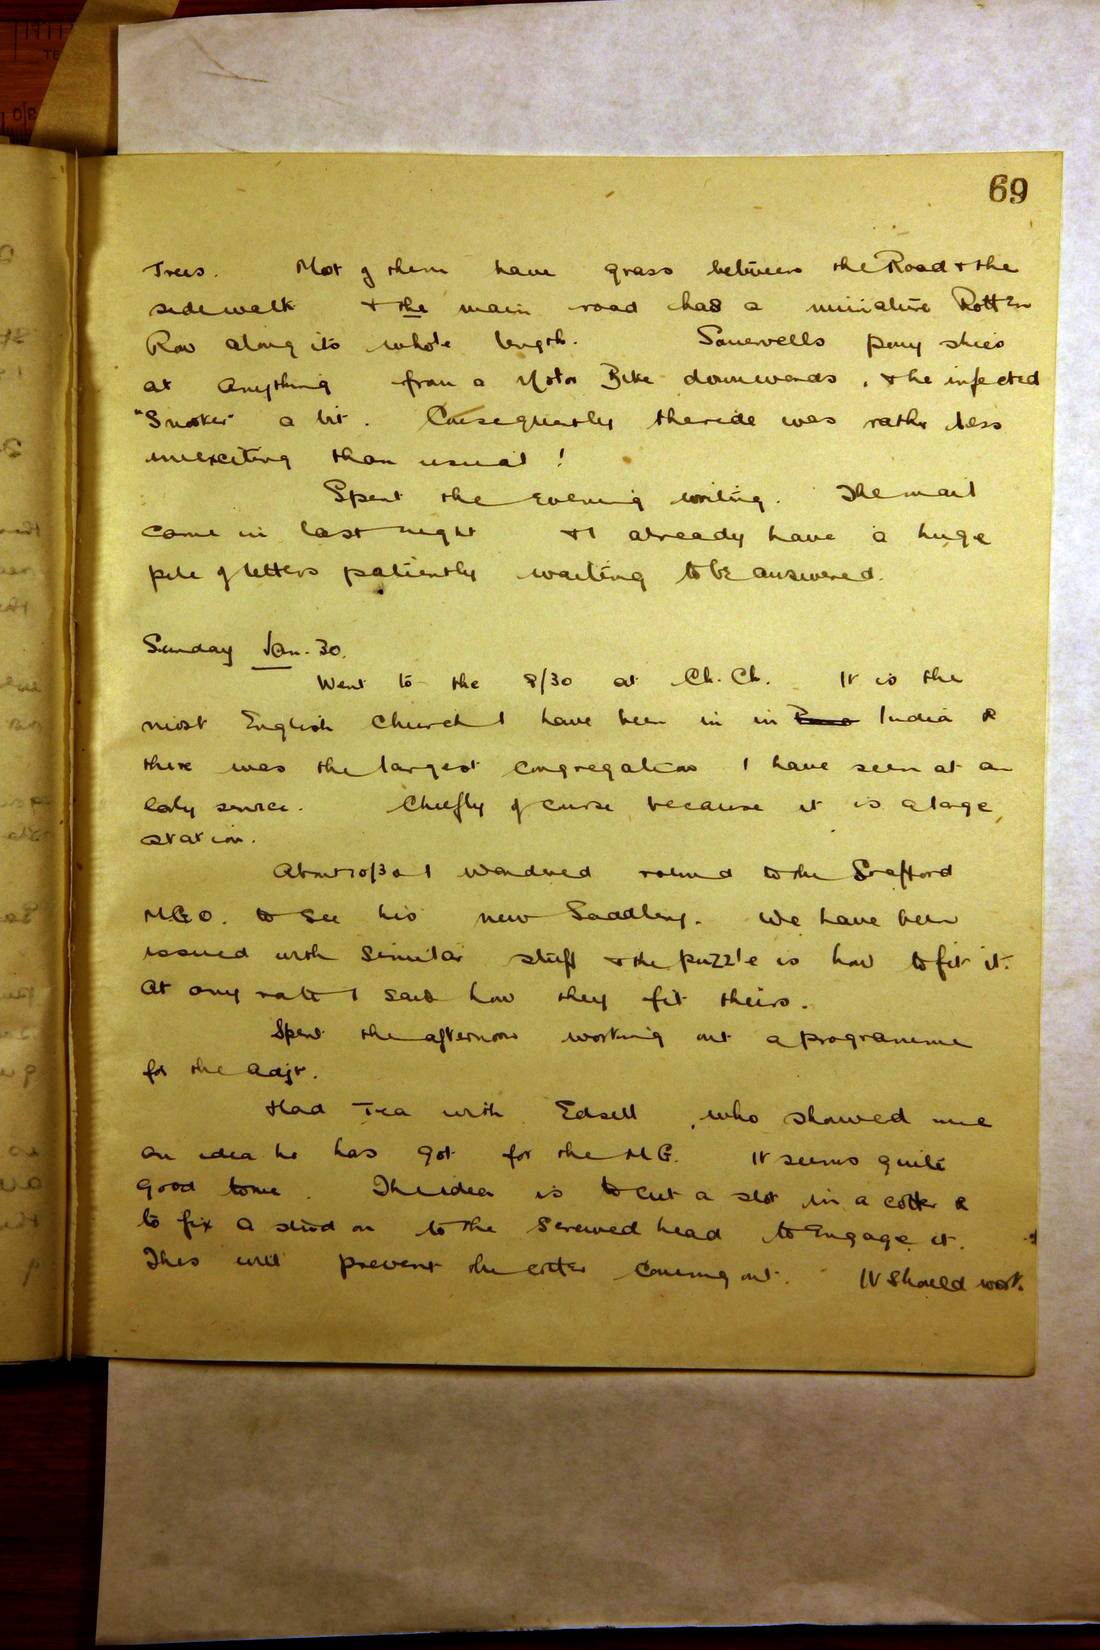 69
Trees. Most of them have grass between the Road & the
sidewalk & the main road has a miniature Rotten
Row along its whole length. Somervells pony shies
at Anything from a Motor Bike downwards, & he infected
"Snooker" a bit. Consequently the ride was rather less
unexciting than usual!
Spent the Evening writing. The mail
came in last night & I already have a huge
pile of letters patiently waiting to be answered.
Sunday Jan. 30.
Went to the 8/30 at Ch. Ch. It is the
most English Church I have been in in India &
there was the largest congregation I have seen at an
early service. Chiefly of course because it is a large
station.
About 10/30 I wandered round to the Stafford
M.G.O. to see his new Saddlery. We have been
issued with similar stuff & the puzzle is how to fit it.
At any rate I saw how they fit theirs.
Spent the afternoon working out a programme
for the Adjt.
Had Tea with Edsell, who showed me
an idea he has got for the M.G. It seems quite
good to me. The idea is to cut a slot in a cotter &
to fix a stud on to the Screwed head to Engage it.
This will prevent the cotter coming out. It should work.